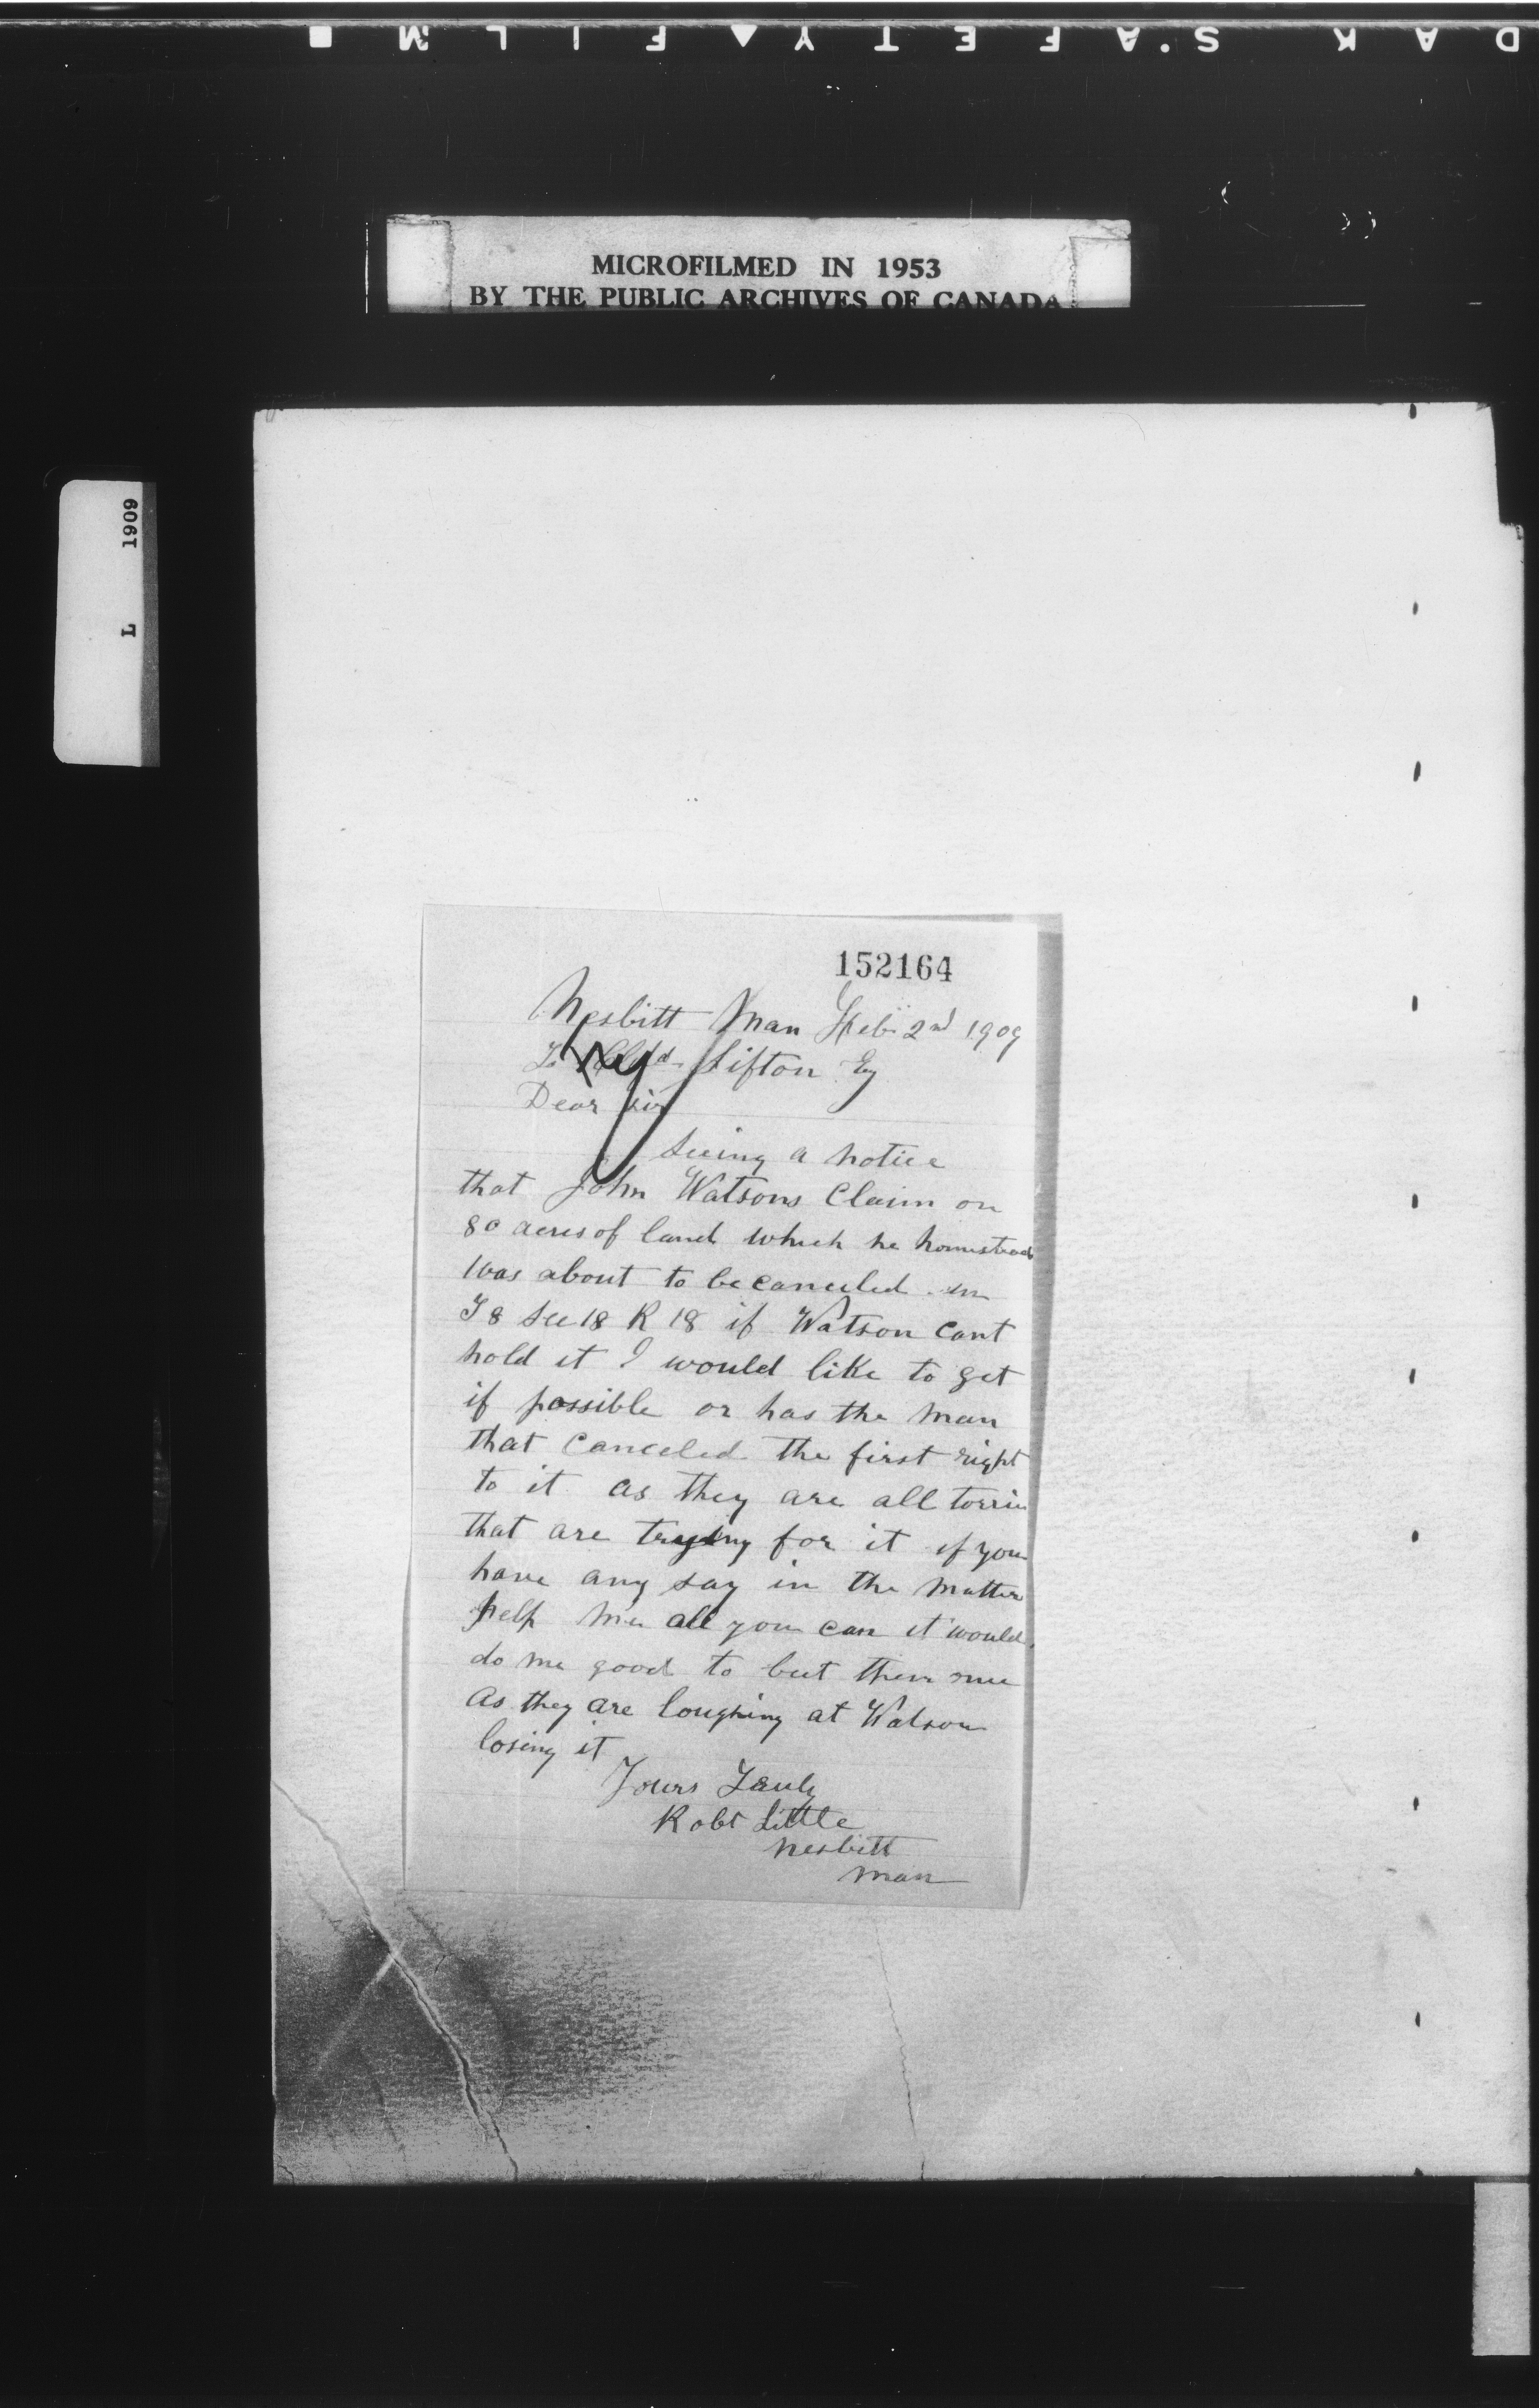 DAK S.AFETY▲FILM ■
MICROFILMED IN 1953
BY THE PUBLIC ARCHIVES OF CANADA
L 1909
152164
Nesbitt Man Feb 2nd 1909
Sifton Esq
Dear Sir
Seeing a notice
that John Watsons Claim on
80 acres of land which he homestead
was about to be canceled in
T 8 Sec 18 R 18 if Watson cant
hold it I would like to get
if possible or has the man
that canceled the first right
to it as they are all torries
that are trying for it if you
have any say in the matter
help me all you can it would
do me good to beat them
as they are loughing at Watson
losing it
Yours Truly
Robt Little
Nesbitt
Man